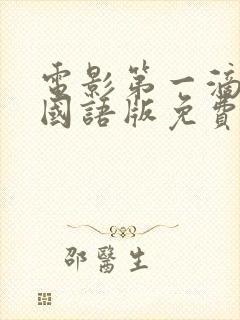 電影第一滴
國語版免費
邵醫生